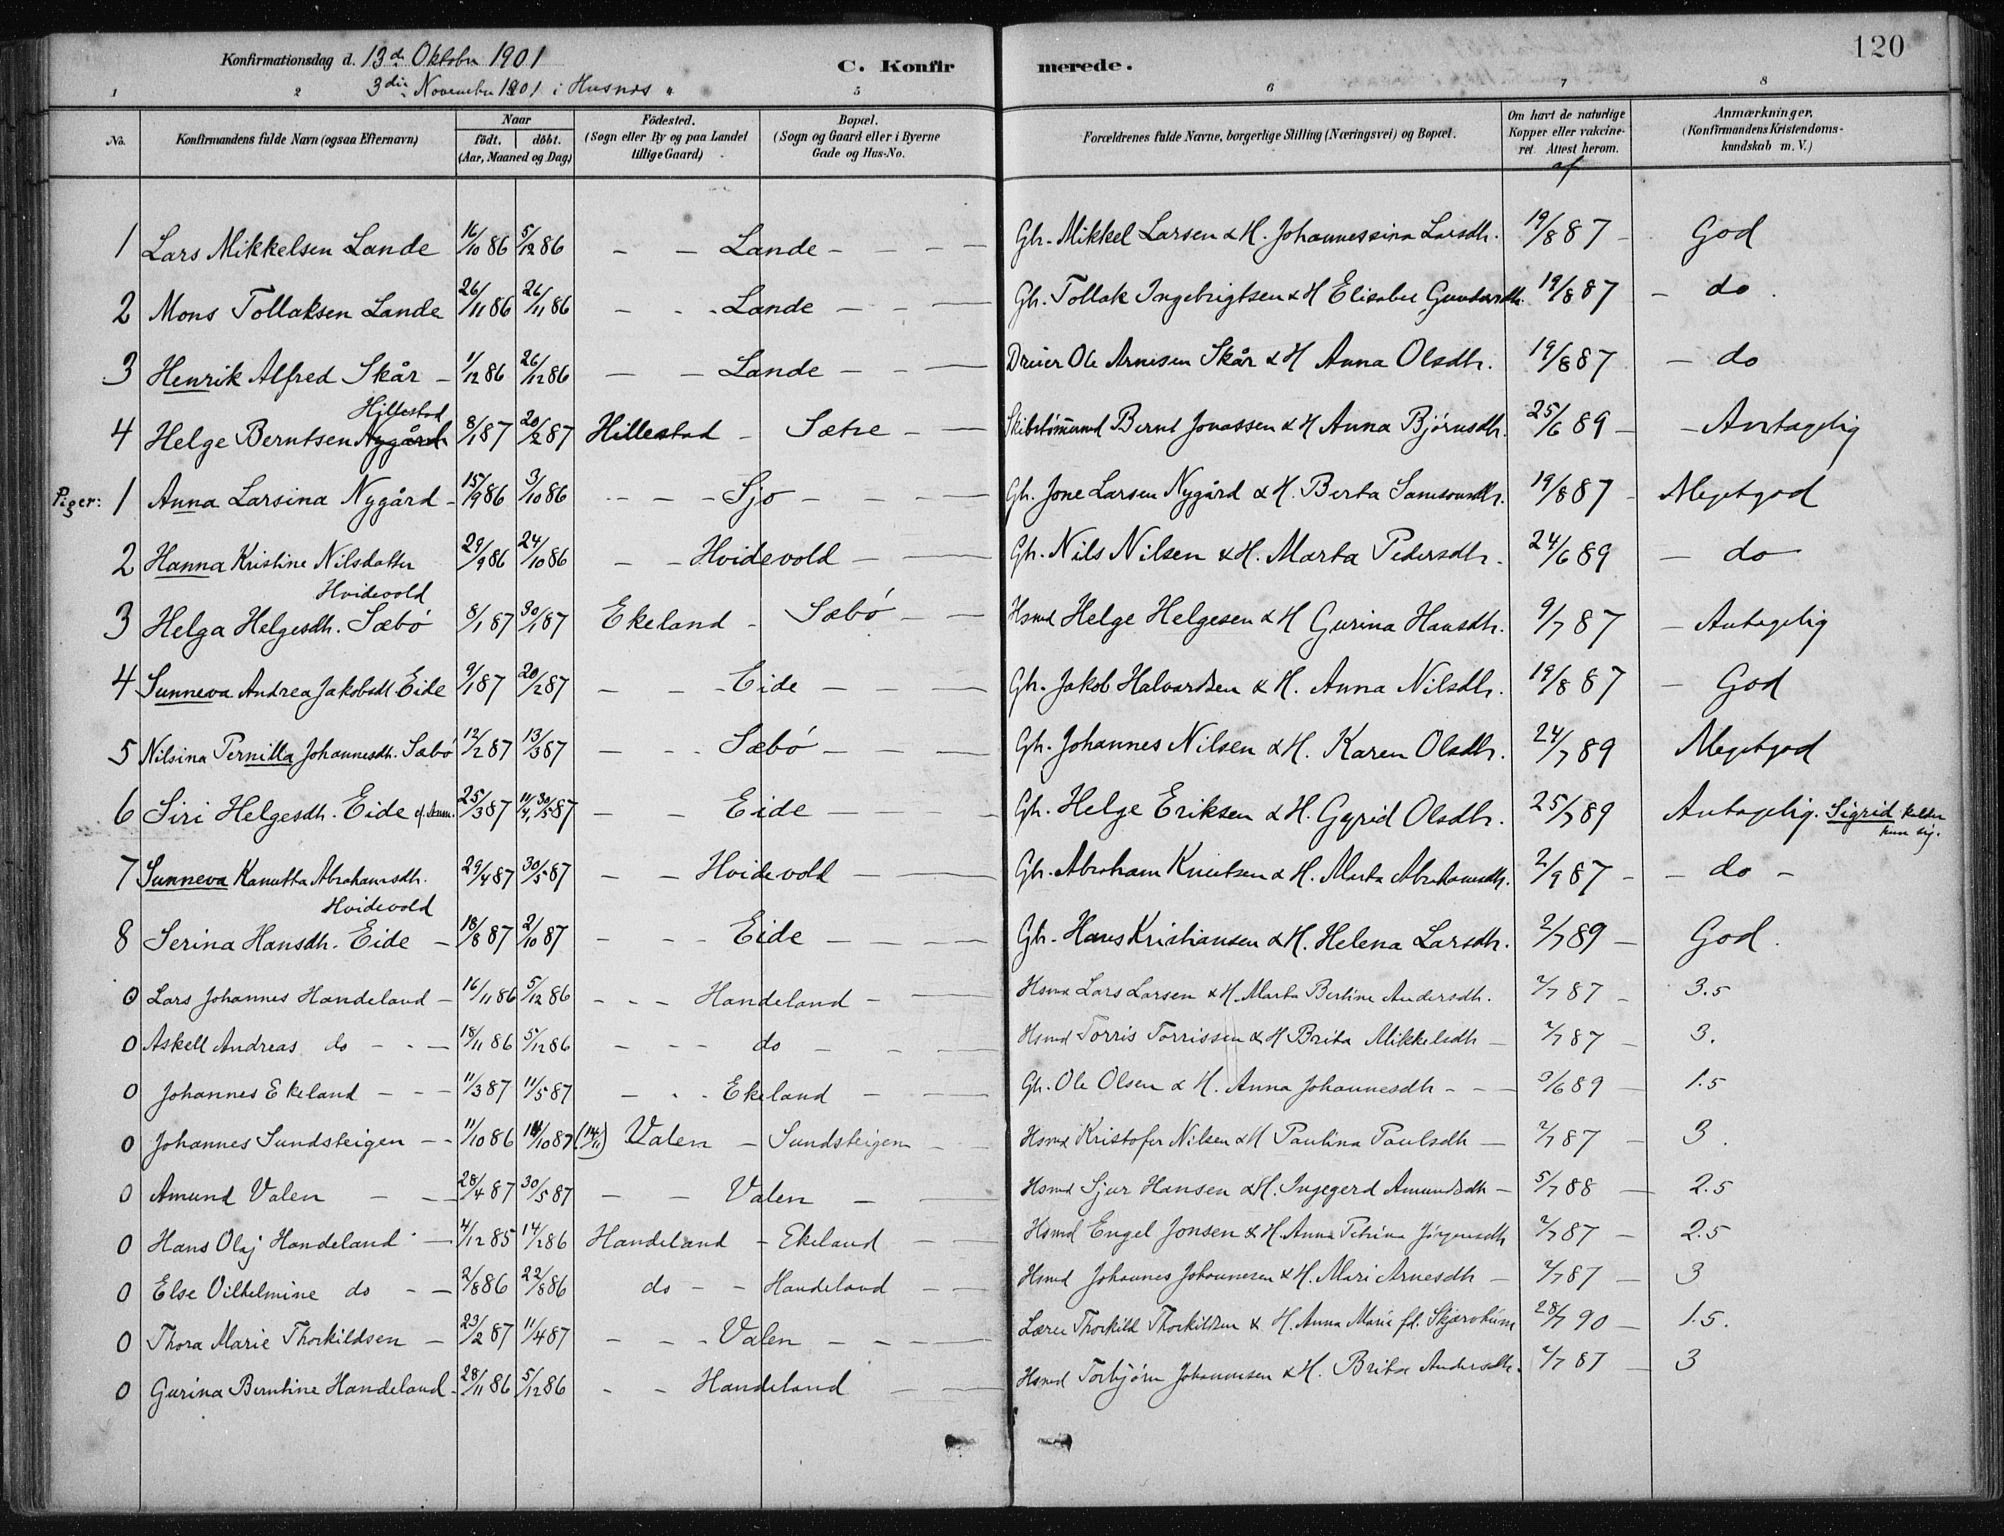 120
Konfirmationsdag d. 13de Oktober 1901
3die November 1901 i Husnes "
C. Konfirmerede.
1 2 3 5 6 7 8
No. Konfirmandens fulde Navn (ogsaa Efternavn) Naar født. døbt. (Aar, Maaned og Dag) Fødested. (Sogn eller By og paa Landet tillige Gaard) Bopæl. (Sogn og Gaard eller i Byerne Gade og Hus-No. Forældrenes fulde Navne, borgerlige Stilling (Næringsvei) og Bopæl. Om havt de naturlige Kopper eller vakcineret. Attest herom. af Anmærkninger. (Konfirmandens Kristendomskundskab m. V.)
1 Lars Mikkelsen Lande 16/10 86 5/12 86 - - Lande - - - - Gbr. Mikkel Larsen & H. Johannessina Larsdtr. 19/8 87 - God
2 Mons Tollaksen Lande 26/11 86 26/11 86 - - - Lande - - - Gbr. Tollak Ingebrigtsen & H Elisabet 19/8 87 - do.
3 Henrik Alfred Skår - 1/12 86 26/12 86 - - Lande - - - Ole Arnesen Skår & H Anna Olsdtr. 19/8 87 - do
Hillestad
4 Helge Berntsen Nygård 8/1 87 20/2 87 Hillestad - Sætre - - Bernt Jonassen & H Anna Bjørnsdtr. 25/6 89 - - Antagelig
Piger: 1 Anna Larsina Nygård - 15/9 86 3/10 86 - - - Sjo - - - - Gbr. Jone Larsen Nygård & H. Berta Samsonsdtr. 19/8 87 - Megetgod
2 Hanna Kristine Nilsdatter 29/9 86 24/10 86 - - Hvidevold - - Gbr. Nils Nilsen & H. Marta Pedersdtr. - 24/6 89 - do
Hvidevold
3 Helga Helgesdtr. Sæbö 8/1 87 30/1 87 Ekeland - Sæbö - - Hsmd Helge Helgesen & H Gurina Hansdtr. 9/7 87 - Antagelig
4 Sunneva Andrea Jakobsdt Eide 9/1 87 20/2 87 - - - Eide - - - - Gbr. Jakob Halvardsen & H. Anna Nilsdtr. 19/8 87 - God
5 Nilsina Pernilla Johannesdtr. Sæbö 12/2 87 13/3 87 - - - Sæbö - - - - Gbr. Johannes Nilsen & H. Karen Olsdtr. 24/7 89 Megetgod
6 Siri Helgesdtr. Eide cf. Anm. 25/3 87 11/4, 30/5 87 - - Eide - - - - Gbr. Helge Eriksen & H. Gyrid Olsdtr. 25/7 89 Antagelig. Sigrid kalder
hun sig.
7 Sunneva Kanutta Abrahamsdtr. 29/4 87 30/5 87 - - Hvidevold - - Gbr. Abraham Knutsen & H. Marta Abrahamsdtr. 2/9 87 - - do -
Hvidevold
8 Serina Hansdtr. Eide - 18/8 87 2/10 87 - - - Eide - - - - Gbr. Hans Kristiansen & H. Helena Larsdtr. 2/7 89 - God.
0 Lars Johannes Handeland - 16/11 86 5/12 86 - - - Handeland - - Hsmd Lars Larsen & H. Marta Bertine Andersdtr. 2/7 87 - 3.5
0 Askell Andreas do - - - 18/11 86 5/12 86 - - - do - - - Hsmd Torris Torrissen & H Brita Mikkelsdtr - 2/7 87 - 3.
0 Johannes Ekeland - - 11/3 87 11/5 87 - - - Ekeland - - - Gbr. Ole Olsen & H. Anna Johannesdtr - - - 3/6 89 - 1.5
0 Johannes Sundsteigen - - 11/10 86 14/10 87 (14/11) Valen - Sundsteigen - - Hsmd Kristofer Nilsen & H Paulina Paulsdtr - 2/7 87 - 3.
0 Amund Valen - - - 28/4 87 30/5 87 - - Valen - - Hsmd Sjur Hansen & H. Ingegerd Amundsdtr - 5/7 88 - 2.5
0 Hans Olaj Handeland - 4/12 85 14/2 86 Handeland - Ekeland - - Hsmd Engel Jonsen & H. Anna Petrina Jörgensdtr 2/7 87 - 2.5
0 Else Vilhelmine do - - 2/8 86 22/8 86 do - - Handeland - - Hsmd Johannes Johannesen & H. Mari Arnesdtr - 2/7 87 - 3
0 Thora Marie Thorkildsen - 23/2 87 11/4 87 - - - Valen - - - Lærer Thorkild Thorkildsen & H. Anna Marie fd. 28/7 90 - 1.5.
0 Gurina Berntine Handeland - 28/11 86 5/12 86 - - Handeland - - Hsmd Torbjörn Johannesen & H. Brita Andersdtr. 2/7 87 - 3